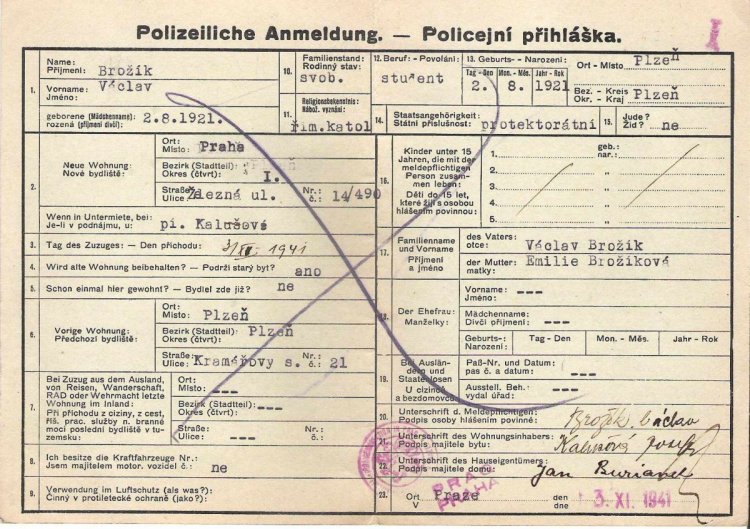 Polizeiliche Anmeldung. — Policejní přihláška.
I
1.
Name:
Příjmení: Brožík
Vorname: Václav
Jméno:
geborene (Mädchenname):
rozená (příjmení dívčí): 2.8.1921.
10.
Familienstand:
Rodinný stav:
svob.
11.
Religionsbekenntnis:
Nábož. vyznání:
řím.katol
12. Beruf: - Povolání:
student
13. Geburts- - Narození:
Tag - Den
2.
Mon. - Měs.
8.
Jahr - Rok
1921
Ort - Místo Plzeň
Bez. - Kreis
Okr. - Kraj Plzeň
14.
Staatsangehörigkeit:
Státní příslušnost: protektorátní
15.
Jude?
Žid? ne
2.
Neue Wohnung:
Nové bydliště:
Ort:
Místo: Praha
Bezirk (Stadtteil):
Okres (čtvrt): I.
Straße:
Ulice: Železná ul.
Nr.:
č.: 14/490
Wenn in Untermiete, bei:
Je-li v podnájmu, u: pí. Kalušové
3. Tag des Zuzuges: — Den příchodu: 3/XI. 1941
4. Wird alte Wohnung beibehalten? - Podrží starý byt? ano
5. Schon einmal hier gewohnt? - Bydlel zde již? ne
6.
Vorige Wohnung:
Předchozí bydliště:
Ort:
Místo: Plzeň
Bezirk (Stadtteil):
Okres (čtvrt): Plzeň
Straße:
Ulice: Kramářovy s.
Nr.:
č.: 21
7.
Bei Zuzug aus dem Ausland,
von Reisen, Wanderschaft,
RAD oder Wehrmacht letzte
Wohnung im Inland:
Při příchodu z ciziny, z cest,
říš. prac. služby n. branné
moci poslední bydliště v tu-
zemsku:
Ort:
Místo: ---
Bezirk (Stadtteil):
Okres (čtvrt): ---
Straße:
Ulice: ---
Nr.:
č.:
8.
Ich besitze die Kraftfahrzeuge Nr.:
Jsem majitelem motor. vozidel č.: ne
9.
Verwendung im Luftschutz (als was?):
Činný v protiletecké ochraně (jako?):
16.
Kinder unter 15
Jahren, die mit der
meldepflichtigen
Person zusam-
men leben:
Děti do 15 let,
které žijí s osobou
hlášením povinnou:
1.
geb.:
nar.:
2.
"
3.
"
4.
"
5.
17.
Familienname
und Vorname
Příjmení
a jméno
des Vaters:
otce: Václav Brožík
der Mutter:
matky: Emilie Brožíková
18.
Der Ehefrau:
Manželky:
Vorname:
Jméno: ---
Mädchenname:
Dívčí příjmení: ---
Geburts-:
Narození:
Tag - Den
Mon. - Měs.
Jahr - Rok
19.
Bei Auslän-
dern und
Staatenlosen
U cizinců
a bezdomovců
Paß-Nr. und Datum:
pas č. a datum: ---
Ausstell. Beh.:
vydal úřad: ---
20.
Unterschrift d. Meldepflichtigen:
Podpis osoby hlášením povinné: Brožík Václav
21.
Unterschrift des Wohnungsinhabers:
Podpis majitele bytu:
22.
Unterschrift des Hauseigentümers:
Podpis majitele domu:
PRAG
PRAHA
23.
Ort
V Praze
den
dne
3. XI. 1941